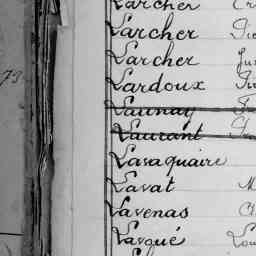 Larcher
Larcher
Larcher
73 Lardoux
Launay
Laurant
Lavaquaire
Lavat M
Lavenas
Lavqué